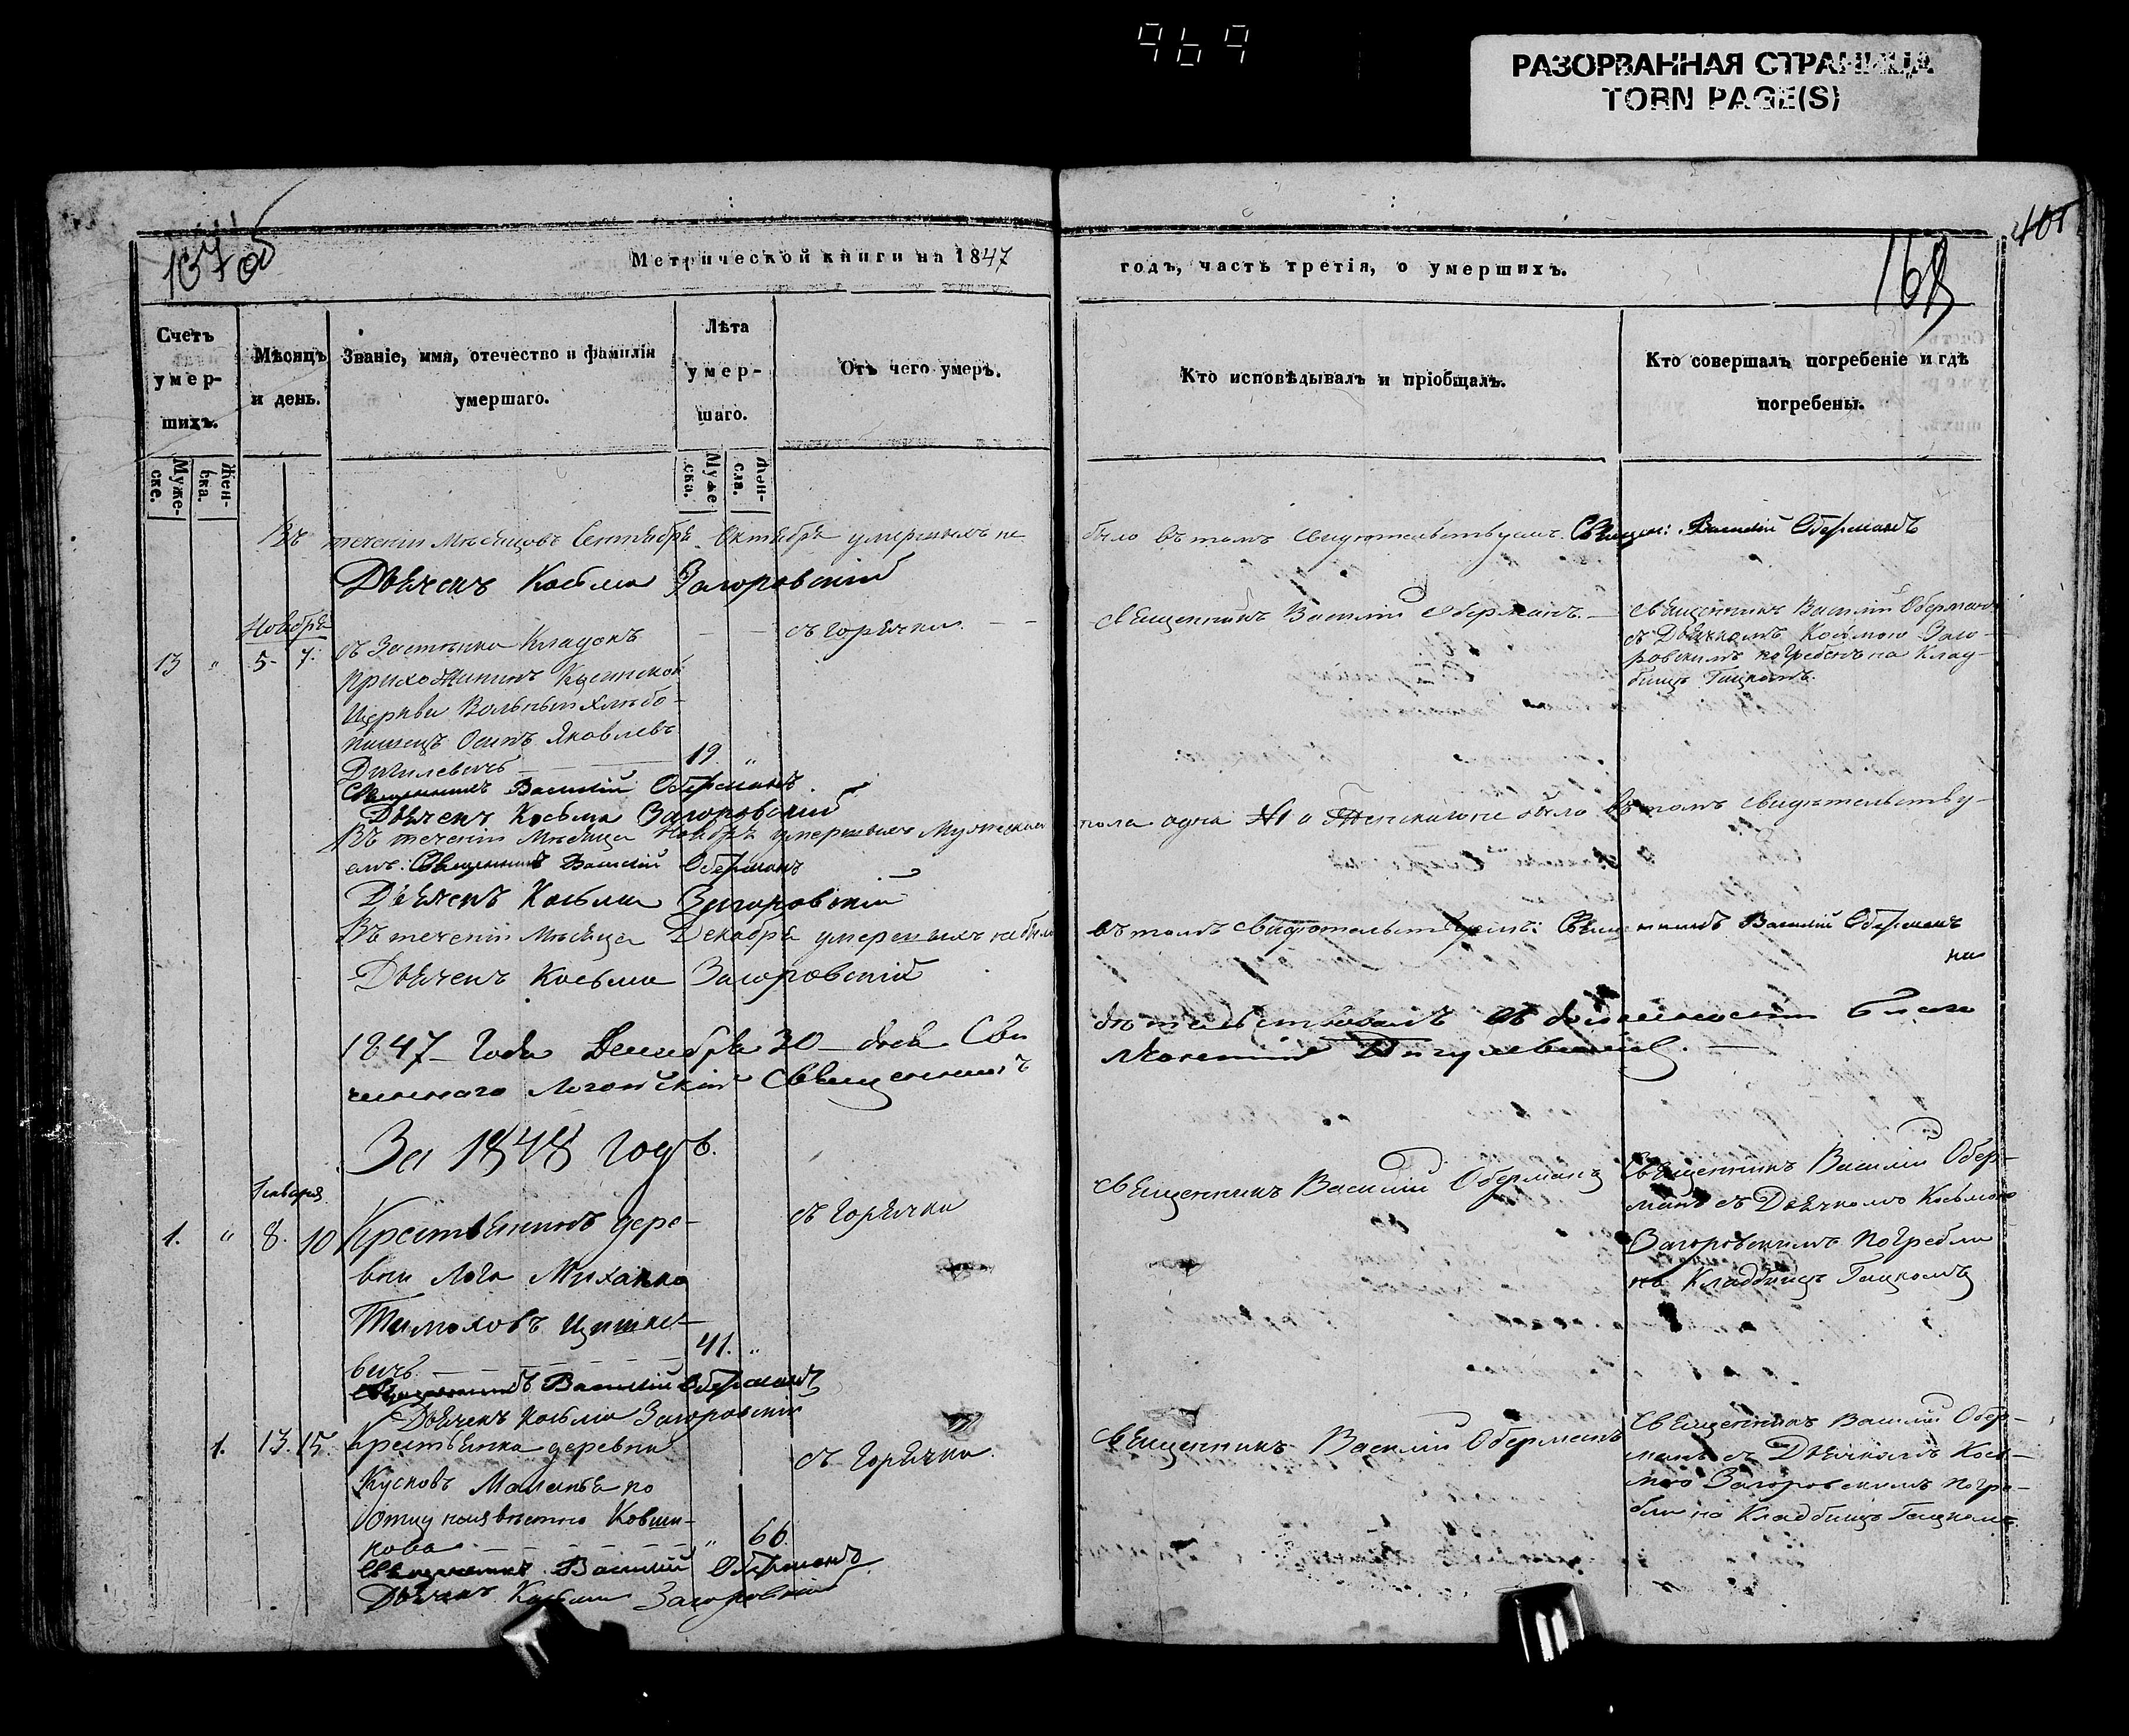 969
РАЗОРВАННАЯ СТРАНИЦА
TORN PAGE(S)
Метрической книги на 1847
годъ, часть третія, о умершихъ.
168
Счетъ умер-шихъ.
Мѣсяцъ и день.
Званіе, имя, отечество и фамилія умершаго.
Лѣта умер-шаго.
Отъ чего умеръ.
Кто исповѣдывалъ и пріобщалъ.
Кто совершалъ погребеніе и гдѣ погребены.
Муже-ске.
Жен-ска.
Муже-ска.
Жен-ска.
Въ теченіи Мѣсяцовъ Сентября Октября умершихъ не было въ томъ свидѣтельствуемъ. Священ: Василій Оберманъ
Дьячекъ Косьма Загоровскій
Ноября
13 " 5 - 7.
съ Застѣнка Кладокъ
Прихожанинъ
Церкви Вольный хлѣбо-
пашецъ Осипъ Яковлевъ
19. "
съ Горячки
Священникъ Василій Оберманъ.
Священникъ Василій Оберманъ
съ Дьячкомъ Косьмою Заго-
ровскимъ погребенъ на Клад-
бищѣ Гицкомъ.
Священникъ Василій Оберманъ.
Дьячекъ Косьма Загоровскій
Въ теченіи Мѣсяца Ноября умершихъ Мужескаго пола одна №1 а Женскаго не было въ томъ свидѣтельству-
емъ: Священникъ Василій Оберманъ
Дьячекъ Косьма Загоровскій
Въ теченіи Мѣсяца Декабря умершихъ не было въ томъ свидѣтельствуемъ: Священникъ Василій Оберманъ
Дьячекъ Косьма Загоровскій
1847 Года Декабря 30 дня Сви
дѣтельствовалъ въ должности Благо
чиннаго Логойскій Священникъ
За 1848 годъ.
Января
1. " 8. 10
Крестьянинъ дере-
вни Лога Михалко
Тимоховъ
вичъ
41. "
съ Горячки
Священникъ Василій Оберманъ
Священникъ Василій Обер-
манъ съ Дьячкомъ Косьмою
Загоровскимъ погребли
на Кладбищѣ Гицкомъ
Священникъ Василій Оберманъ
Дьячекъ Косьма Загоровскій
1. 13. 15.
Крестьянка деревни
Кусковъ Маланья по
Отцу неизвѣстно
" 66.
съ Горячки.
Священникъ Василій Оберманъ
Священникъ Василій Обер-
манъ съ Дьячкомъ Кось-
мою Загоровскимъ погре-
бли на Кладбищѣ Гицкомъ
Священникъ Василій Оберманъ.
Дьячекъ Косьма Загоровскій